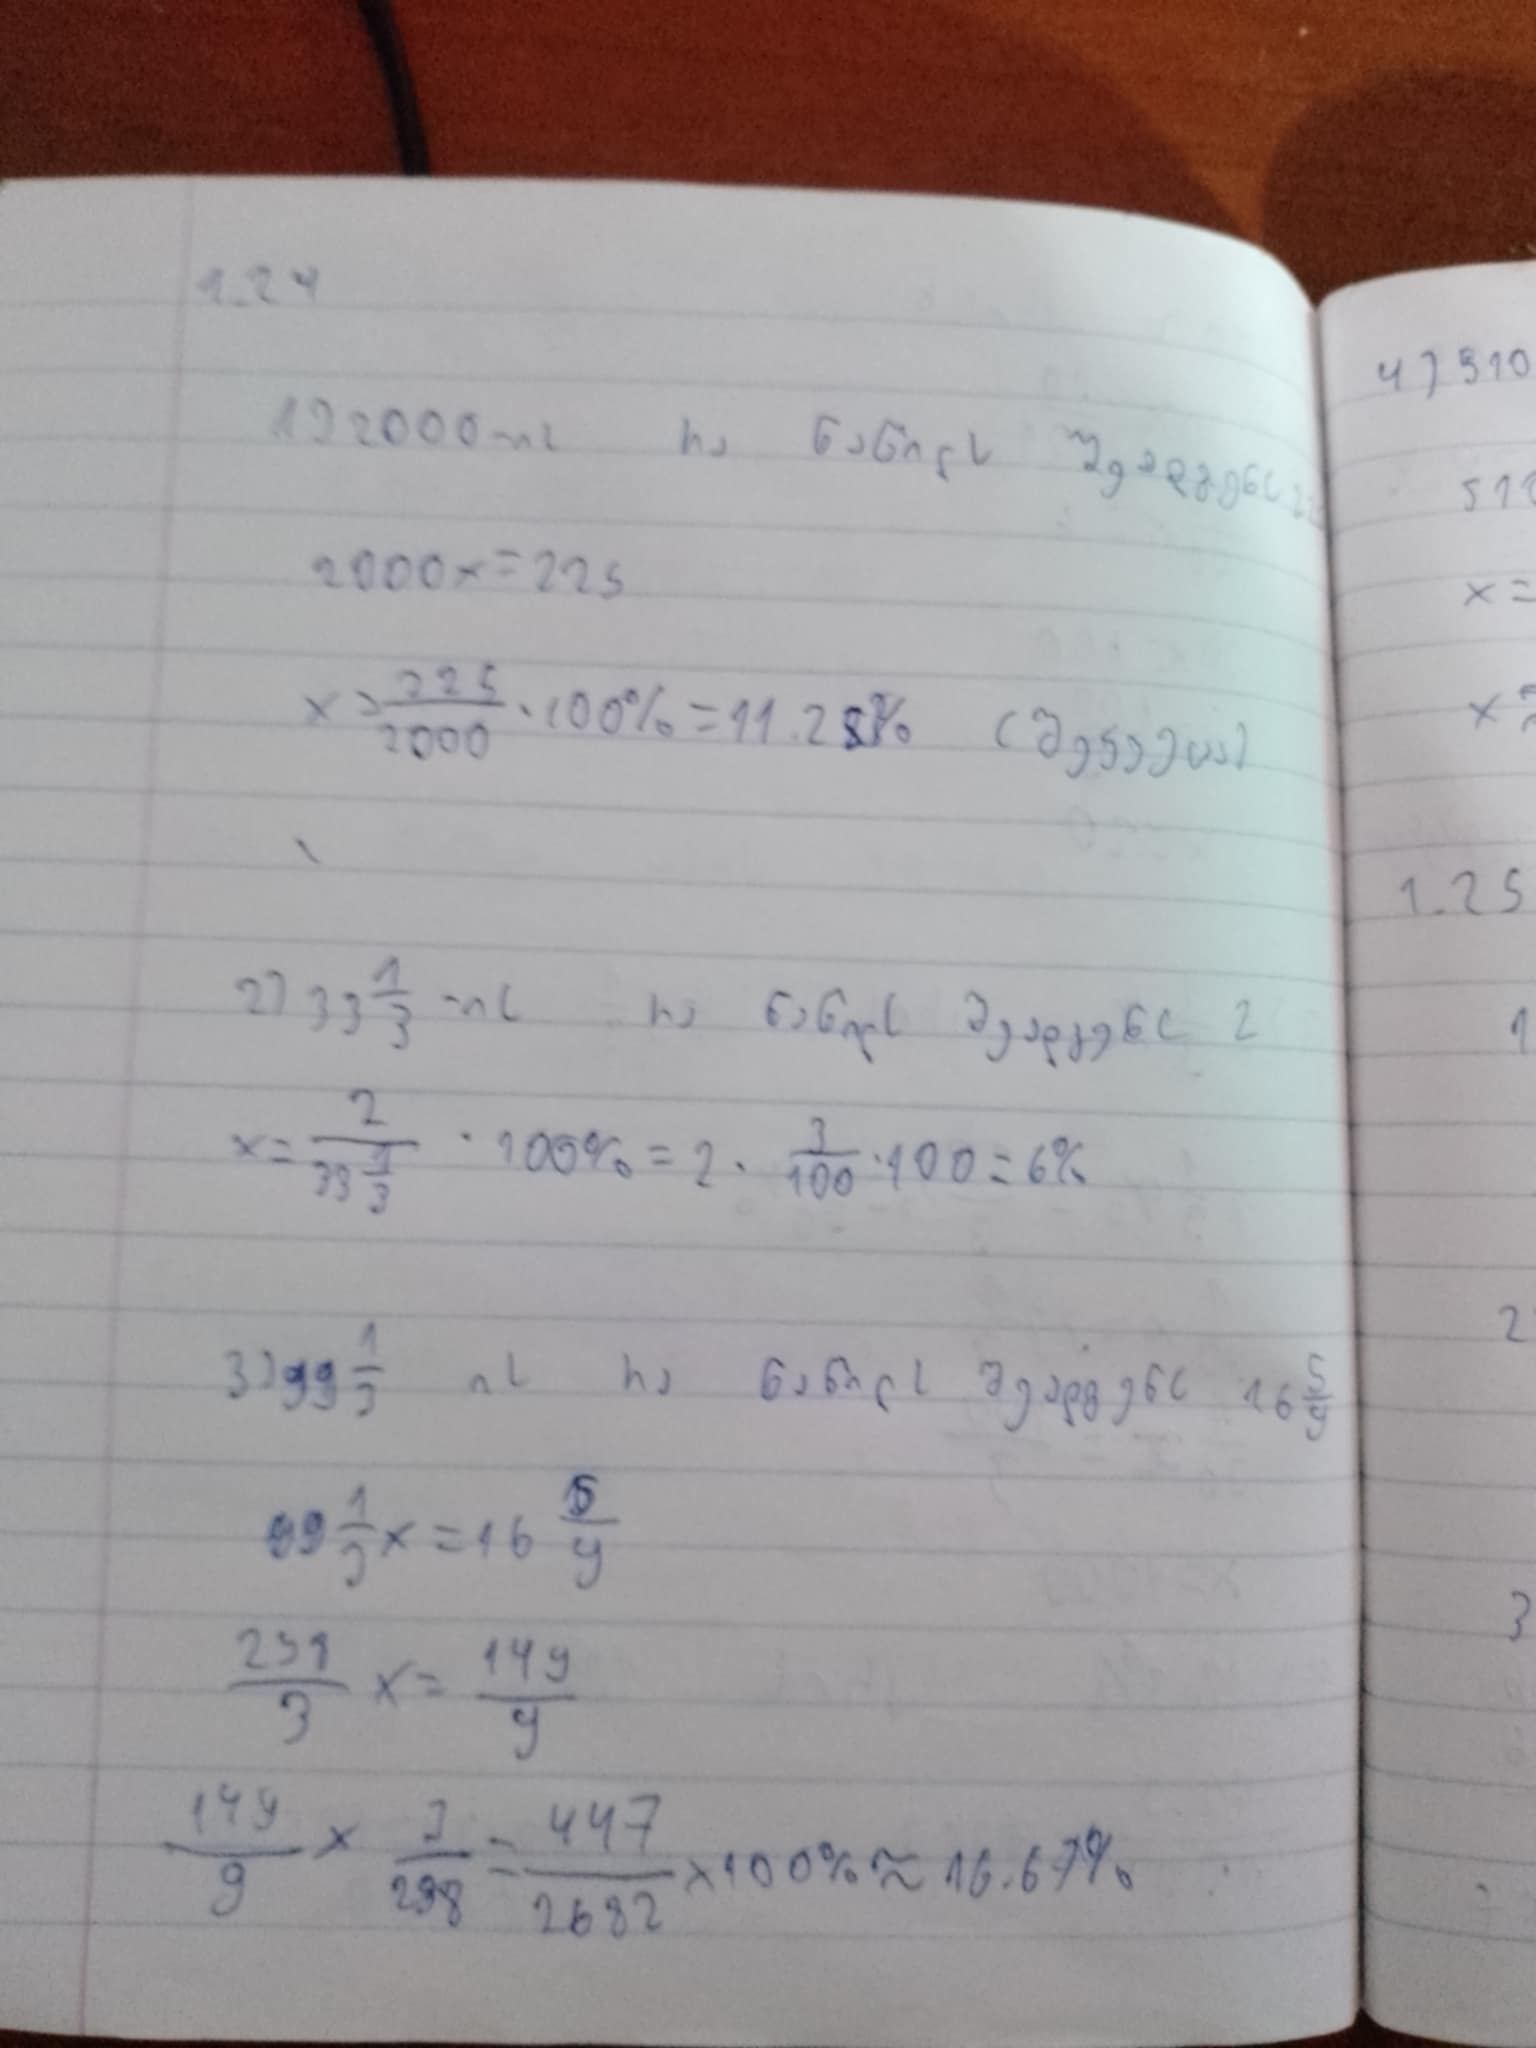 1.24
1) 2000-ის რა ნაწილს შეადგენს 225
2000x=225
x=225/2000 · 100%=11.25% (
2) 33 1/3-ის რა ნაწილს შეადგენს 2
x=2/(33 1/3) · 100%=2 · 3/100 · 100=6%
3) 99 1/3 ის რა ნაწილს შეადგენს 16 5/9
99 1/3 x=16 5/9
298/3 x=149/9
149/9 x 3/298=447/2682 x100%≈16.67%
4) 510
x=
x=
1.25
1
2
3